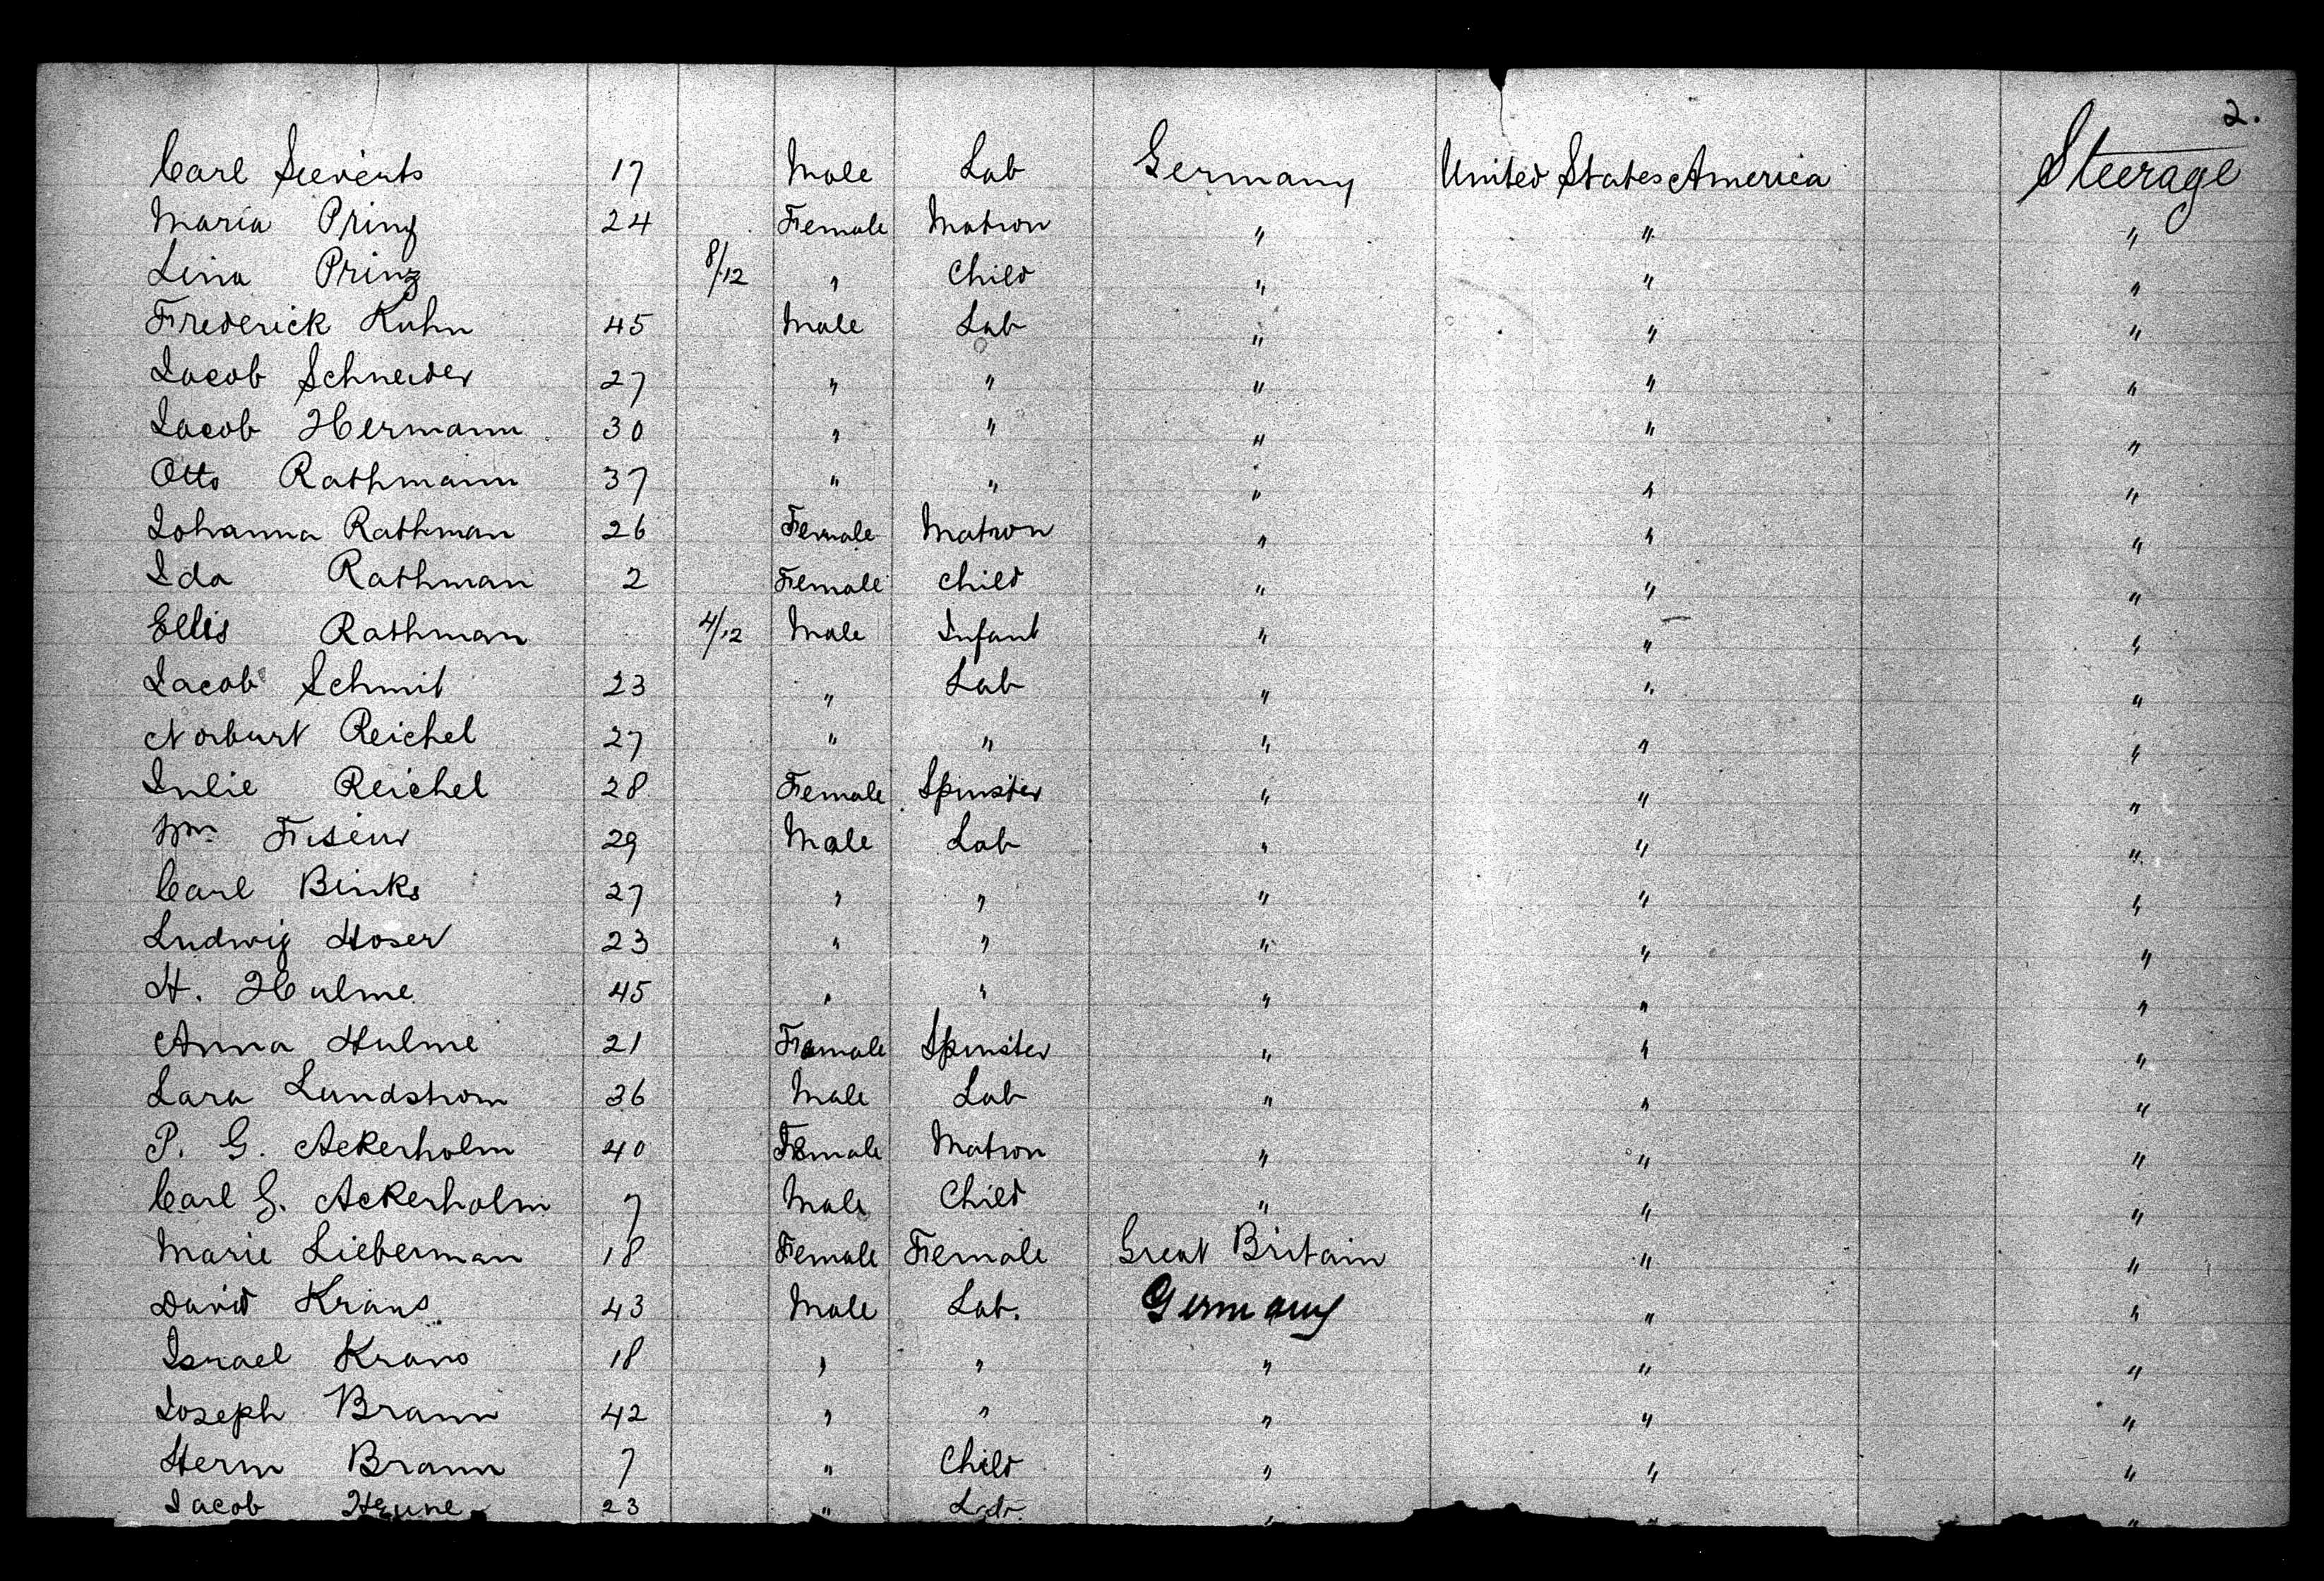 2.
Carl Sieverts 17 Male Lab Germany United States America Steerage
Maria Prinz 24 Female Matron " " "
Lina Prinz 8/12 " Child " " "
Frederick Kuhn 45 Male Lab " " "
Jacob Schneider 27 " " " " "
Jacob Hermann 30 " " " " "
Otto Rathmann 37 " " " " "
Johanna Rathman 26 Female Matron " " "
Ida Rathman 2 Female Child " " "
Ellis Rathman 4/12 Male Infant " " "
Jacob Schmit 23 " Lab " " "
Norburt Reichel 27 " " " " "
Julie Reichel 28 Female Spinster " " "
Wm 29 Male Lab " " "
Carl Binks 27 " " " " "
Ludwig Hoser 23 " " " " "
H. Hulme 45 " " " " "
Anna Hulme 21 Female Spinster " " "
Lara Lundstrom 36 Male Lab " " "
P. G. Ackerholm 40 Female Matron " " "
Carl G. Ackerholm 7 Male Child " " "
Marie Lieberman 18 Female Female Great Britain " "
David Kraus 43 Male Lab. Germany " "
Israel Kraus 18 " " " " "
Joseph Braun 42 " " " " "
Herm Braun 7 " Child " " "
Jacob 23 " Lab. " " "